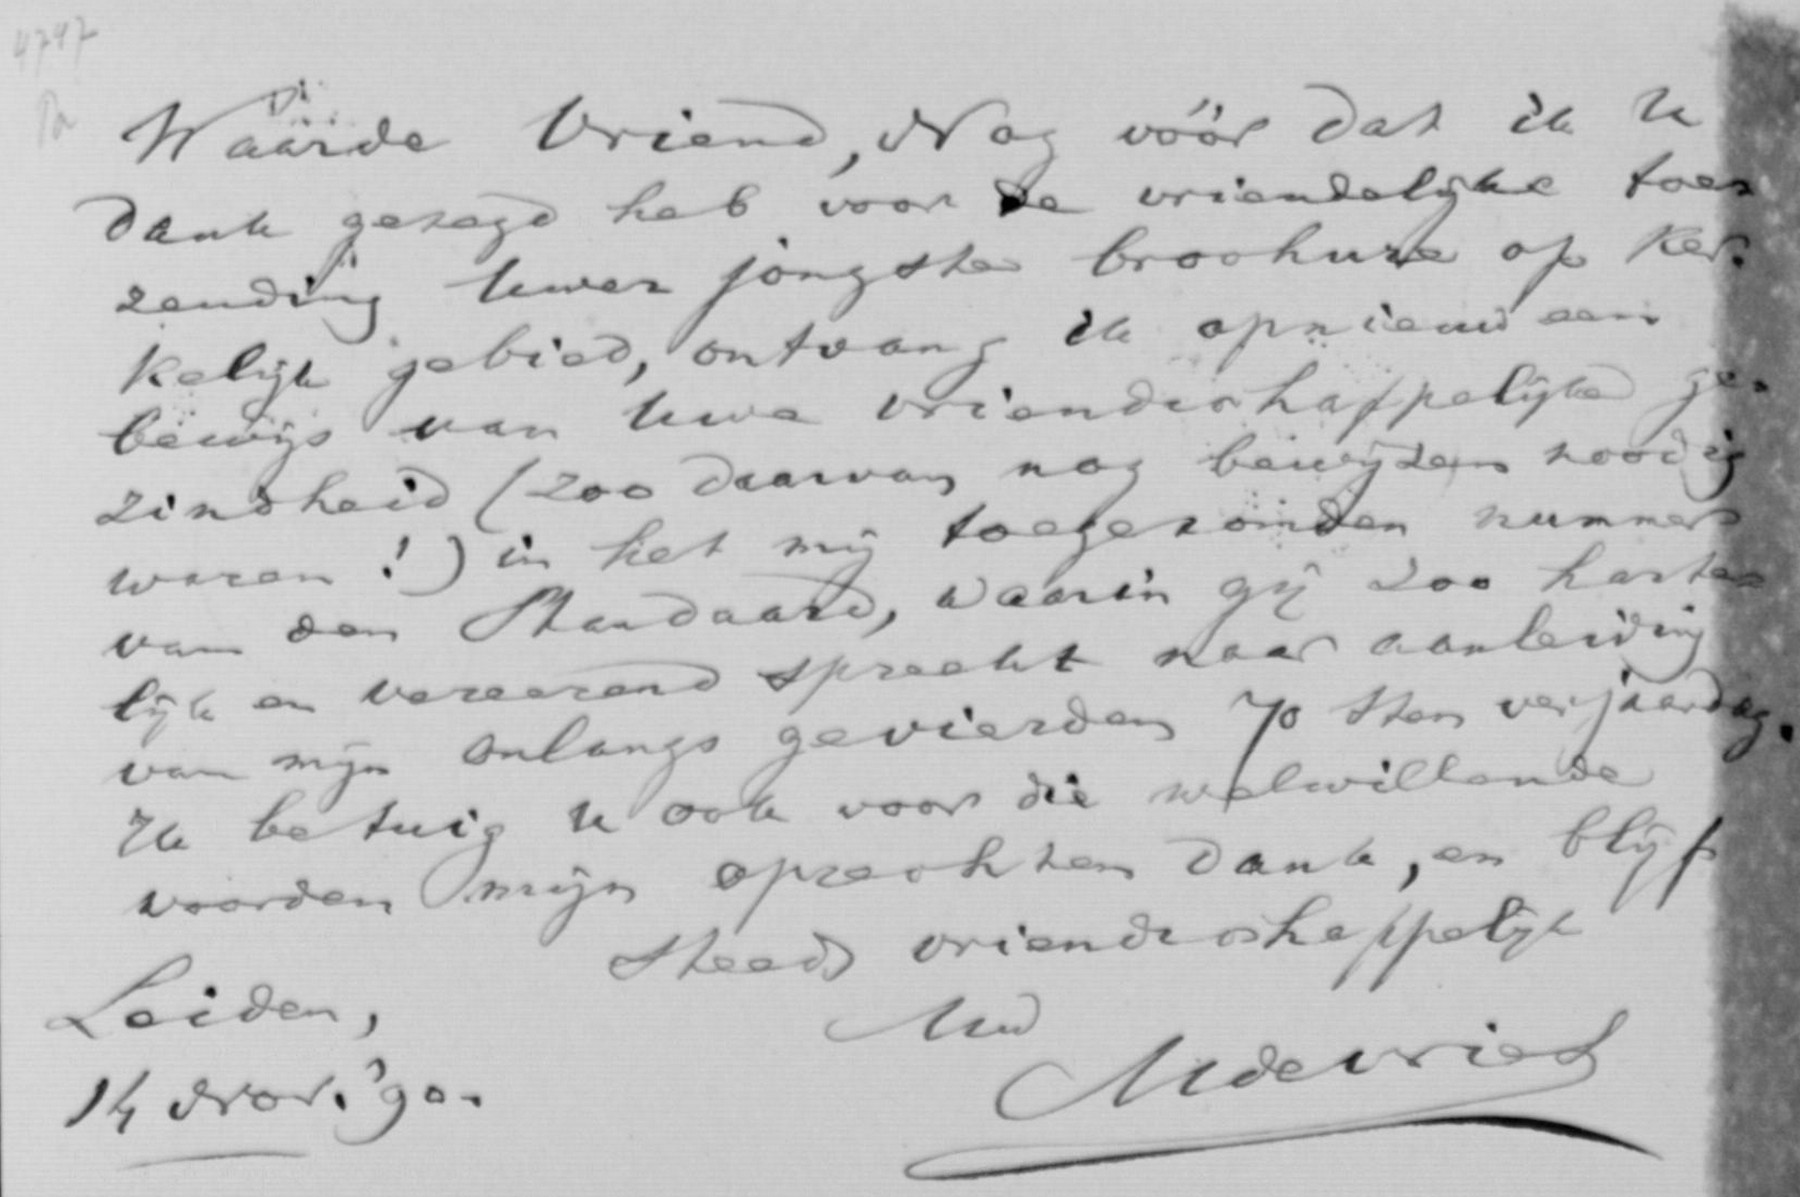 4747
Waarde Vriend, Nog vóór dat ik U
dank gezegd heb voor de vriendelijke toe-
zending Uwer jongste brochure op Ker-
kelijk gebied, ontvang ik opnieuw een
bewijs van Uwe vriendschappelijke ge-
zindheid (zoo daarvan nog bewijzen noodig
waren!) in het mij toegezonden nummer
van den Standaard, waarin gij zoo harte-
lijk en vereerend spreekt naar aanleiding
van mijn onlangs gevierden 70sten verjaardag.
Ik betuig U ook voor die welwillende
woorden mijn oprechten dank, en blijf
steeds vriendschappelijk
Uw
MdeVries
Leiden,
14 Nov. '90.